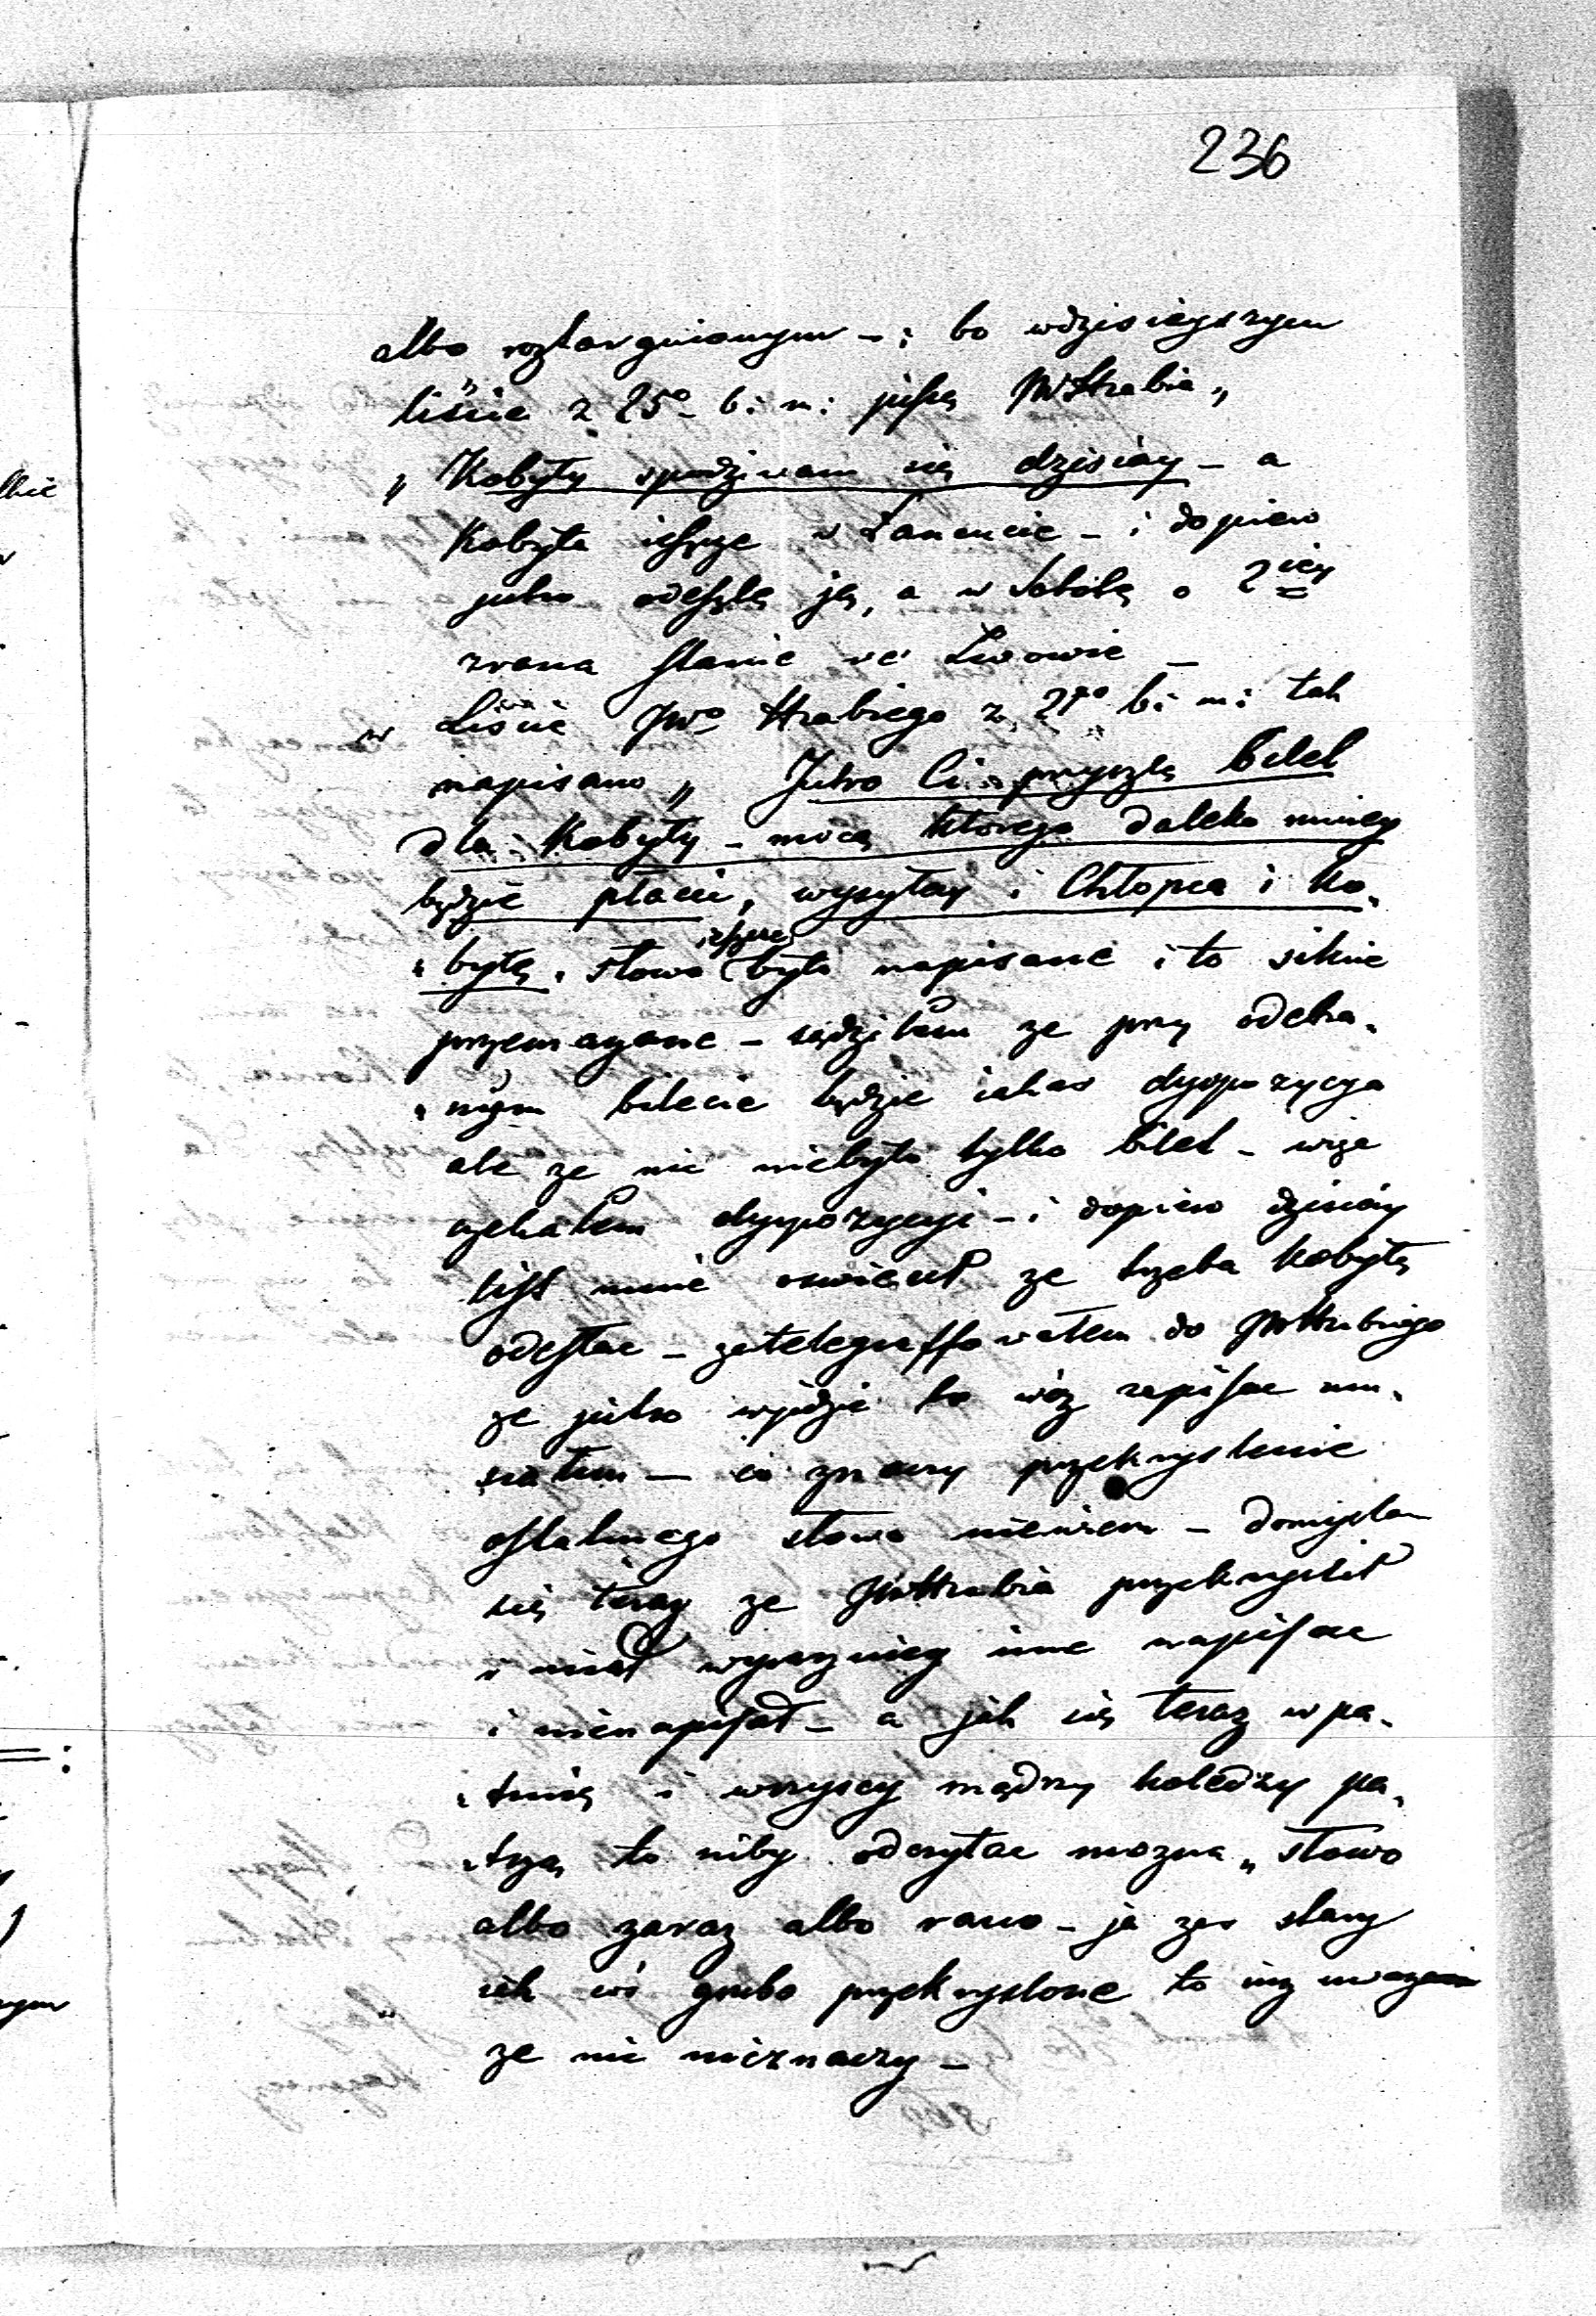 236
albo roztargnionym – i bo wdzisieyszym
liście z 25º b: m: pisze JW Hrabia „
„ Kobyły spodziwam się dzisiay – a
Kobyła ieszcze w Łancucie – i dopiero
jutro odeszlę ją, a w Sobotę o 2iey
zrana stanie we Lwowie –
w Liście JWº Hrabiego z 21º b: m: tak
napisano „ Jutro Ci przyszlę bilet
dla Kobyły – mocą ktorego daleko mniey
będzie płacić, wysyłay i Chłopca i Ko„
„byłę „ słowo było napisane i to silnie
przemazane – sądziłem ze przy odebra„
„nym bilecie będzie iakas dyspozycya
ale ze nic niebyło tylko bilet – więc
czekałem dyspozycyi – i dopiero dzisiay
list mnie oswiecił ze trzeba kobyłę
odesłac – zatelegraffowałem do JWHrabiego
ze jutro wyidzie bo wóz zapisac mu„
siałem – co znaczy przekryslenie
ostatniego słowa niewiem – domyslam
się teraz ze JWHrabia przekryslił
i miał wyrazniey inne napisac
i nienapisał – a jak się teraz wpa„
„truię i wszyscy mądrzy koledzy pa„
„trzą to niby odczytac mozna „ słowo
albo zaraz albo rano – ja zas stary
jak cós grubo przekryslone to iuz uwazam
ze nic nieznaczy –